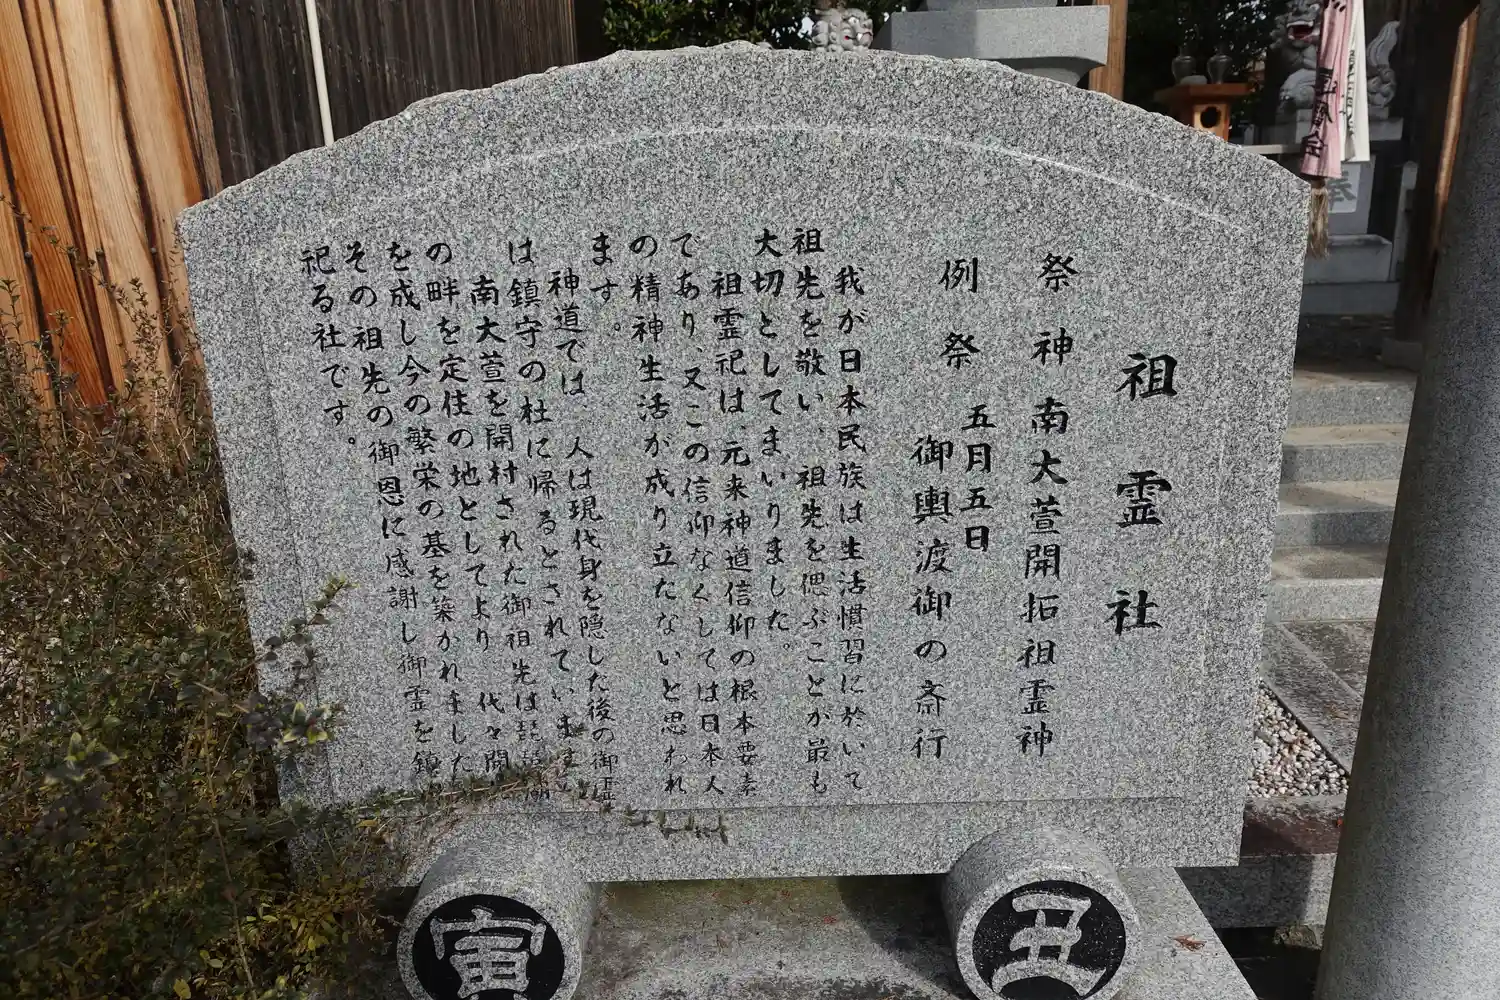 祖霊社
祭神南大萱開拓祖霊神
例祭 五月五日
御輿渡御の斎行
我が日本民族は生活慣習に於いて
祖先を敬い、祖先を偲ぶことが最も
大切としてまいりました。
祖霊祀は、元来神道信仰の根本要素
であり、又この信仰なくしては日本人
の精神生活が成り立たないと思われ
ます。
神道では、人は現代身を隠した後の御霊
は鎮守の杜に帰るとされていま
南大萱を開村された御祖先は琵琶湖
の畔を定住の地としてより、代々開
を成し今の繁栄の基を築かれました
その祖先の御恩に感謝し御霊を鎮
祀る社です。
寅
丑
奉